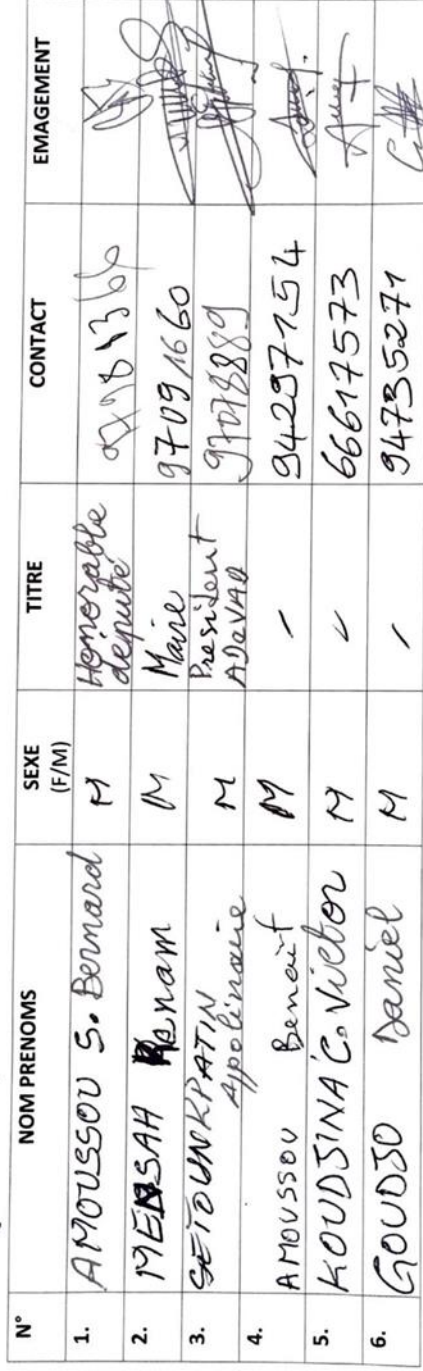 N° NOM PRENOMS SEXE (F/M) TITRE CONTACT EMAGEMENT
1. AMOUSSOU S. Bernard M Honorable député
2. MENSAH M Maire 97091660
3. Appolinaire M President 97078889
4. AMOUSSOU Benoit M / 94297154
5. KOUDJINA C. Victor M / 66617573
6. GOUDJO Daniel M / 94735271